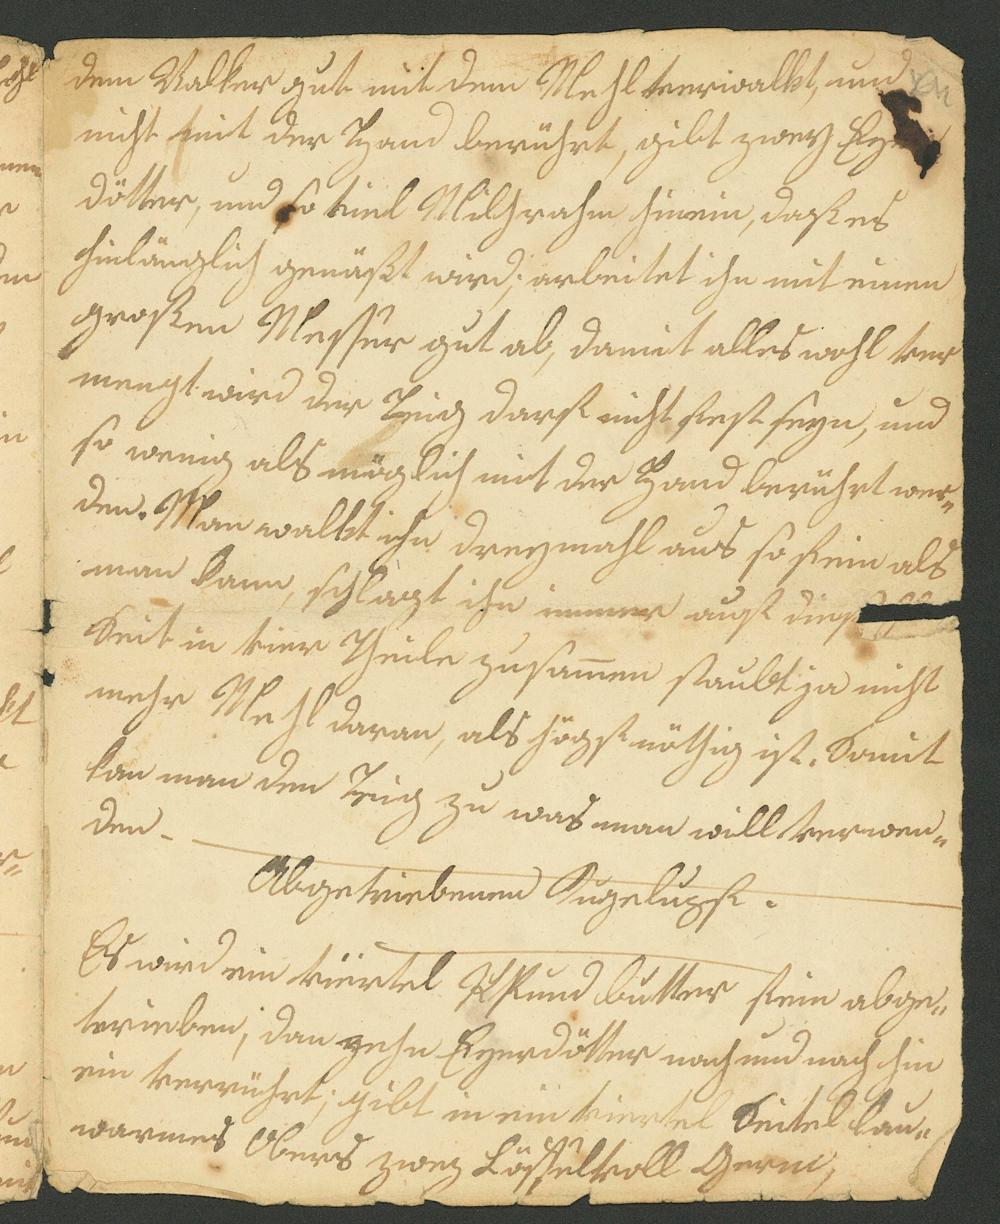 dem Walker gut mit dem Mehl verwalkt, und
nicht mit der Hand berührt, gibt zwey Eyer
dötter, und so viel Milchrahm hinein, daß es
hinlänglich genäßt wird; arbeitet ihn mit einen
großen Messer gut ab, damit alles wohl ver
mengt wird der Teig darf nicht fest seyn, und
so wenig als möglich mit der Hand berührt wer„
den. Man walkt ihn dreymahl aus so fein als
man kann, schlagt ihn immer auf
Seit in vier Theile zusamen staubt ja nicht
mehr Mehl daran, als högst nöthig ist. Somit
kan man den Teig zu was man will verwen„
den –
Abgetriebenen Gugelupf.
Es wird ein viertel Pfund butter fein abge„
trieben, dan zehn Eyerdötter nach und nach hin
ein verrührt; gibt in ein viertel Seitel lau„
warmes Obers zwey Löffelvoll Germ,